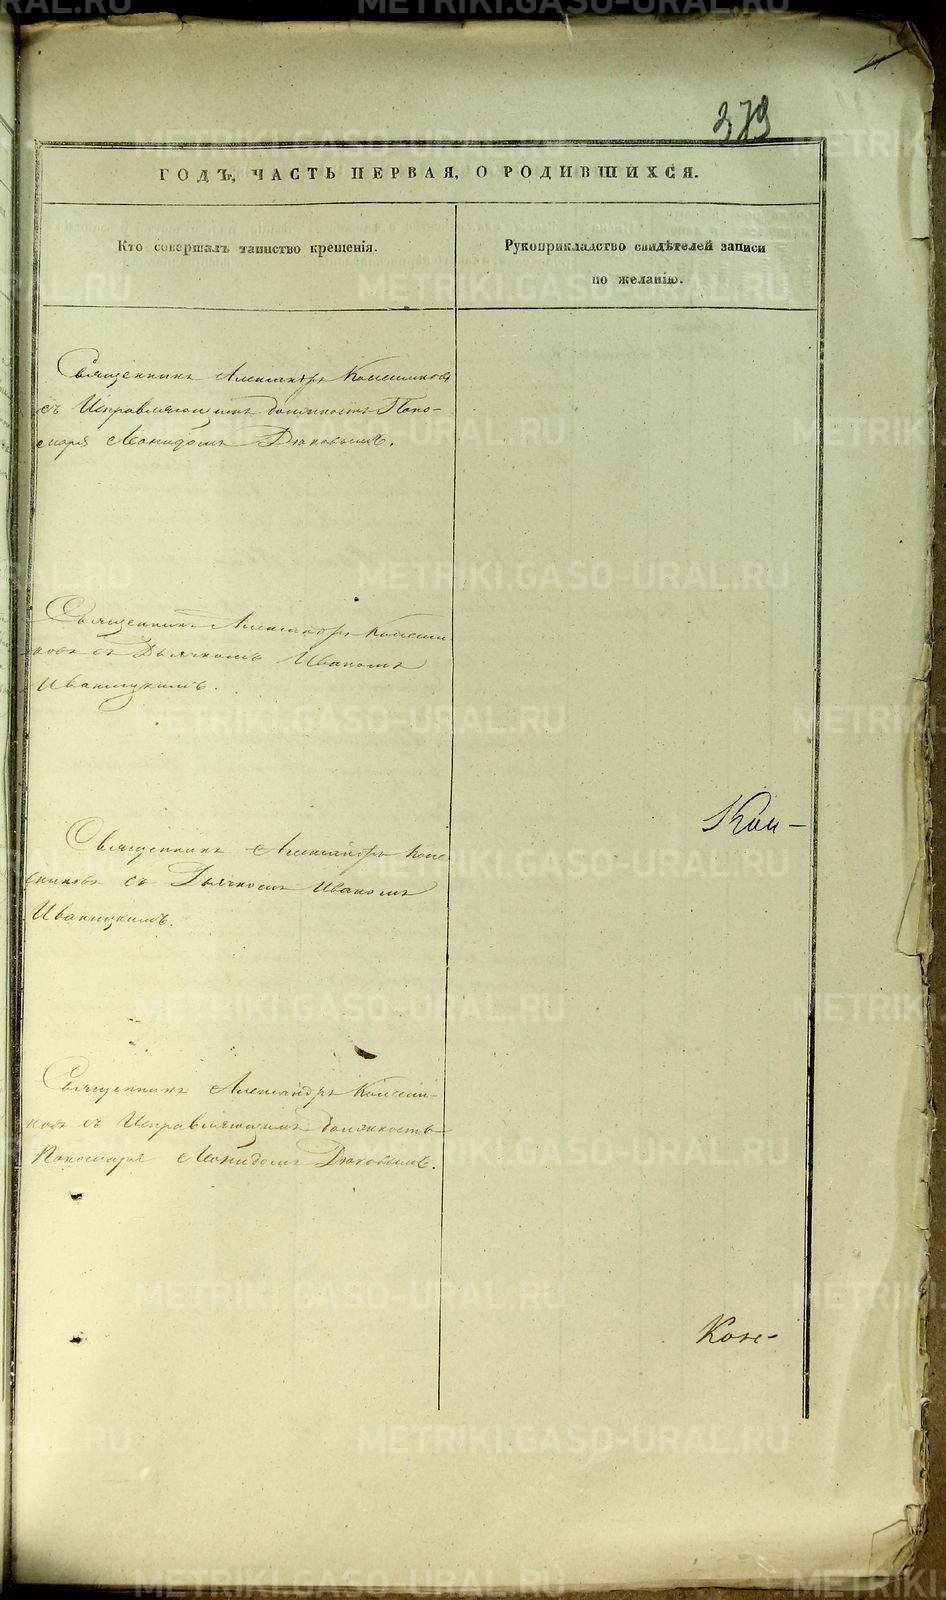 379
ГОДЪ, ЧАСТЬ ПЕРВАЯ, О РОДИВШИХСЯ.
Кто совершалъ таинство крещенія.
Рукоприкладство свидѣтелей записи
по желанію.
Священникъ Александръ
съ Исправляющимъ должность Поно-
маря Леонидомъ Дюковымъ.
Священникъ Александръ
ковъ съ Дьячкомъ Иваномъ
Иваницкимъ.
Священникъ Александръ
съ Дьячкомъ Иваномъ
Иваницкимъ.
Священникъ Александръ
ковъ съ Исправляющимъ должность
Пономаря Леонидомъ Дюковымъ.
METRIKI.GASO-URAL.RU